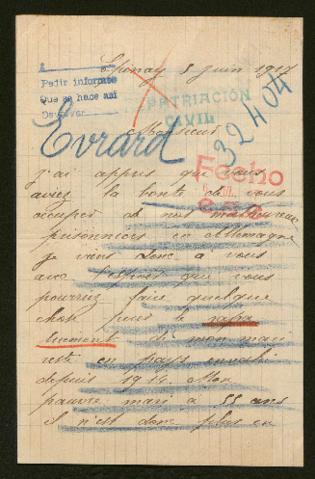 Epernay 5 juin 1917
A
Pedir informate
Que se hace asi
REPATRIACIÓN
CIVIL
Evrard
32404
Monsieur
Fecho
J'ai appris que vous
aviez la bonté de vous
occuper de nos malheureux
prisonniers en Allemagne
je viens donc à vous
avec l'espoir que vous
pourrez faire quelque
chose pour le rapa
triement de mon mari
resté en pays envahi
depuis 1914. Mon
pauvre mari a 55 ans
il n'est donc plus en